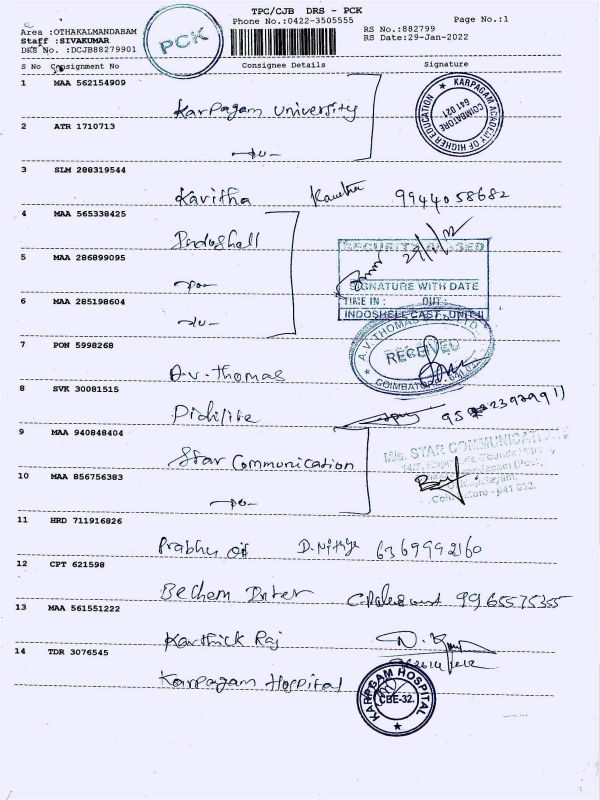 TPC/CJB DRS - PCK
Phone No.:0422-3505555
Page No.:1
Area :OTHAKALMANDABAM
Staff :SIVAKUMAR
DRS No. :DCJB88279901
PCK
RS No.:882799
RS Date:29-Jan-2022
S No Consignment No Consignee Details Signature
1 MAA 562154909
Karpagam University
KARPAGAM ACADEMY OF HIGHER EDUCATION
COIMBATORE
641 021
2 ATR 1710713
-do-
3 SLM 288319544
Kavitha 9944058682
4 MAA 565338425
Indoshell
5 MAA 286899095
-do-
SECURITY PASSED
29/1/22
SIGNATURE WITH DATE
TIME IN : OUT
INDOSHELL CAST, UNIT II
6 MAA 285198604
-do-
7 PON 5998268
A.v. Thomas
A.V. THOMAS
RECEIVED
COIMBATORE
8 SVK 30081515
Pidilite
9 MAA 940848404
Star Communication
M/s. STAR COMMUNICATION
10 MAA 856756383
-do-
11 HRD 711916826
Prabhu 6369992160
12 CPT 621598
Bechem 9965575355
13 MAA 561551222
Karthick Raj
14 TDR 3076545
Karpagam Hospital
KARPAGAM HOSPITAL
CBE-32.